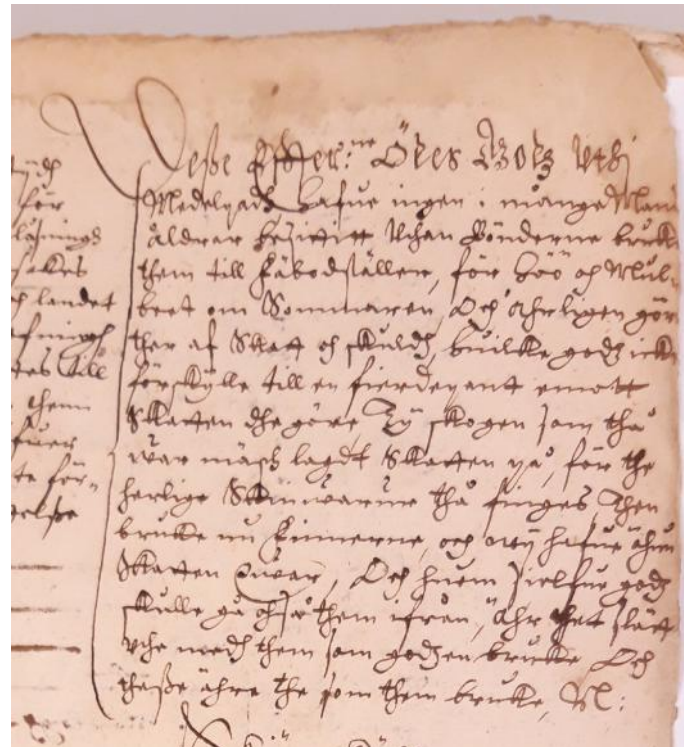 ändh
för
låsningh
sakes
ch landet
tes till
them
te för-
gelße
Deße Effter:ne Ödes Godz Uthj
Medelpadh hafue ingen i mange Mans
åldrar besittit Uthan Bönderne brukt
them till Fäbodställen, för höö och Mul-
beet om Sommaren, Och åhrligen göre
ther af Skatt och skuldh, huilke godz icke
förskylle till en fierdepart emott
Skatten dhe göre, Ty skogen som thå
war mäsk lagdt Skatten på, för the
herlige Skinwarur thå finges, Then
brukke nu Finnerne, och wij hafue åhun
Skatten quar, Och huem sielfue godz
skulle gå ochså them ifrån, Ähr thet slätt
uthe medh them som godzen brukke Och
thesße ähre the som them brukke, Nl: